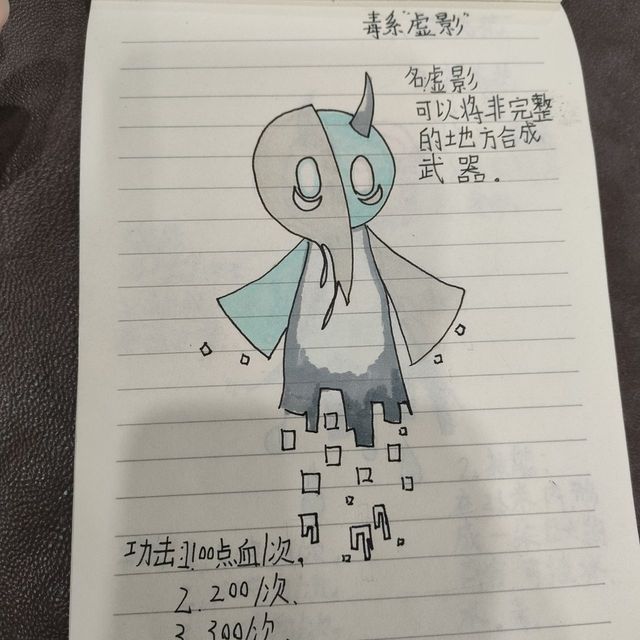 毒系"虚影"
名虚影
可以将非完整
的地方合成
武器。
功击:1.100点血/次。
2.200/次.
3.300/次.